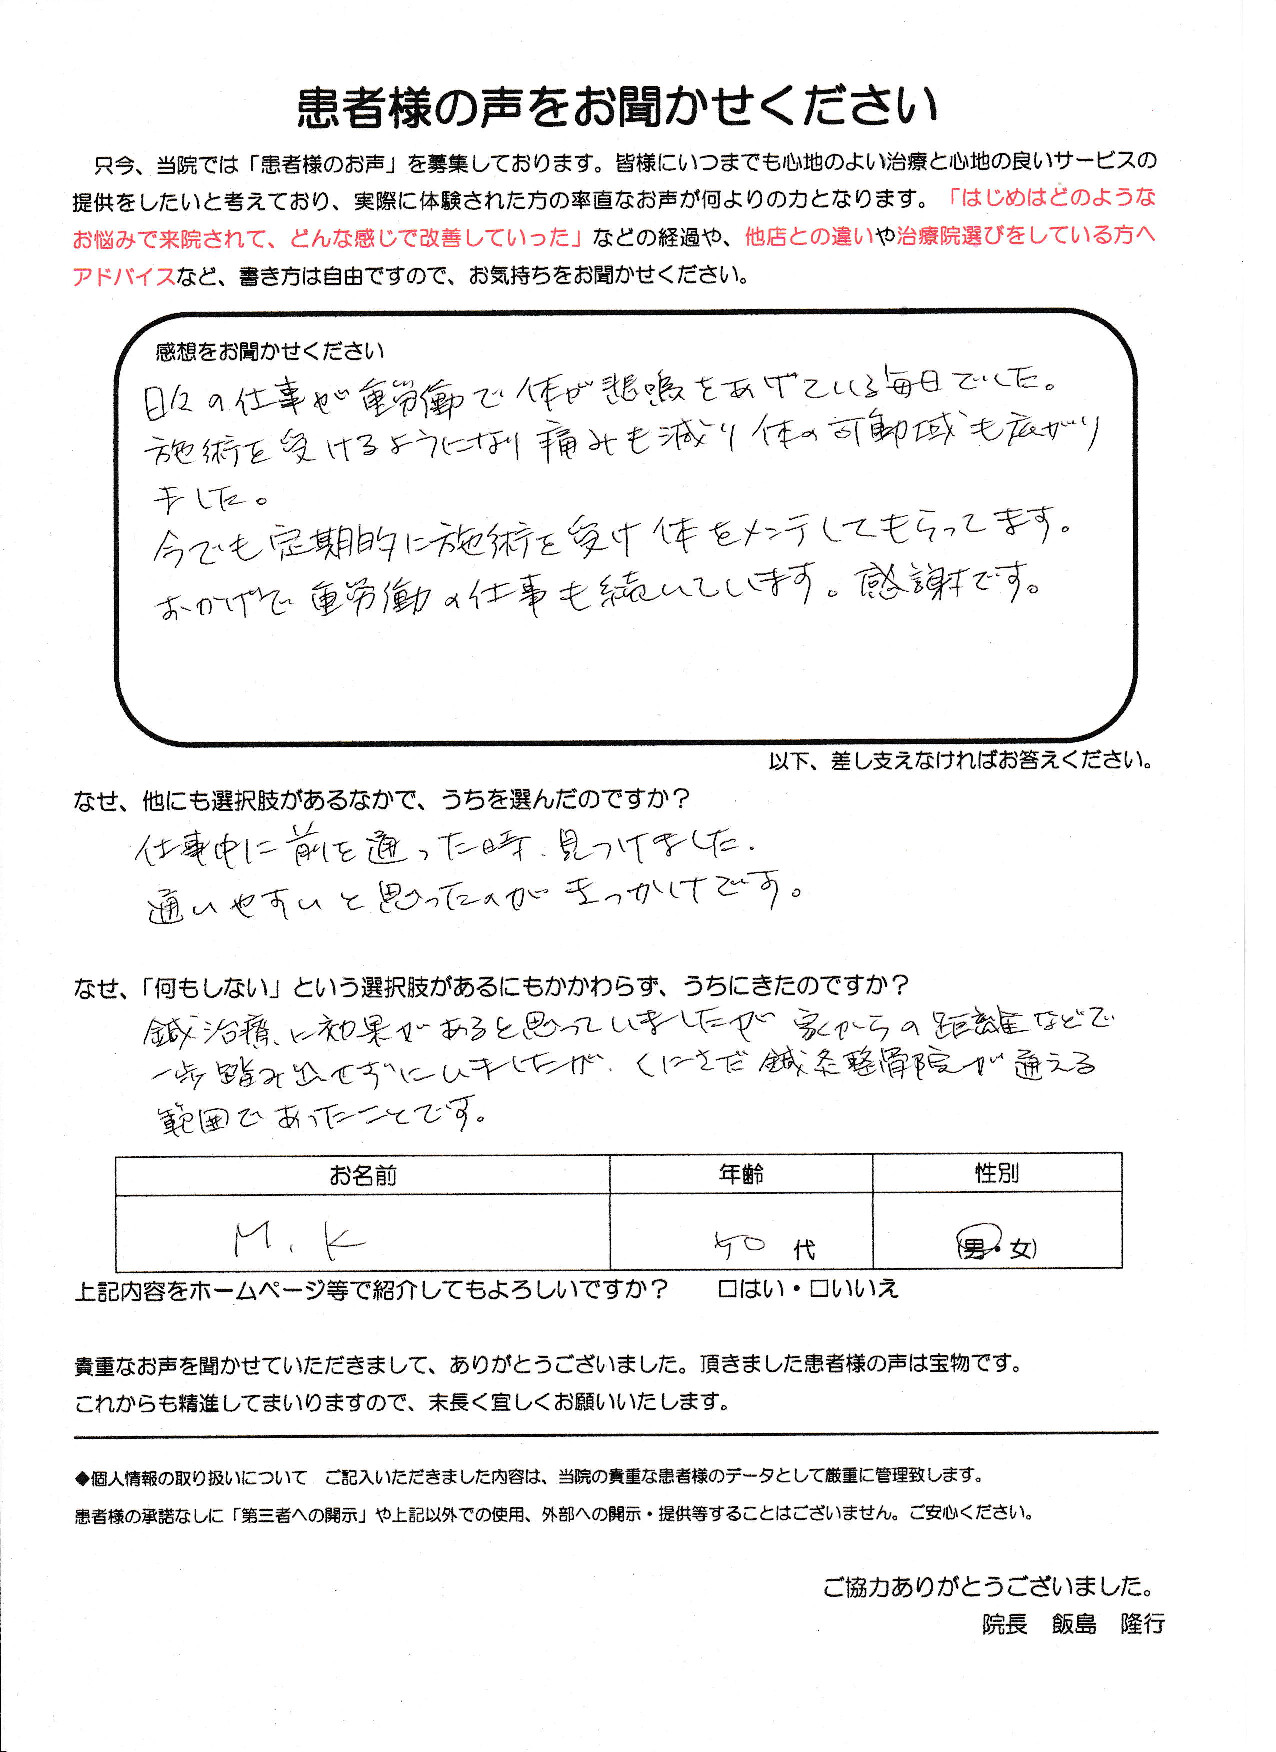 患者様の声をお聞かせください
只今、当院では「患者様のお声」を募集しております。皆様にいつまでも心地のよい治療と心地の良いサービスの
提供をしたいと考えており、実際に体験された方の率直なお声が何よりの力となります。「はじめはどのような
お悩みで来院されて、どんな感じで改善していった」などの経過や、他店との違いや治療院選びをしている方へ
アドバイスなど、書き方は自由ですので、お気持ちをお聞かせください。
感想をお聞かせください
日々の仕事が重労働で体が悲鳴をあげている毎日でした。
施術を受けるようになり痛みも減り体の可動域も広がり
ました。
今でも定期的に施術を受け体をメンテしてもらってます。
おかげで重労働の仕事も続いています。感謝です。
以下、差し支えなければお答えください。
なぜ、他にも選択肢があるなかで、うちを選んだのですか？
仕事中に前を通った時、見つけました。
通いやすいと思ったのがきっかけです。
なぜ、「何もしない」という選択肢があるにもかかわらず、うちにきたのですか？
鍼治療に効果があると思っていましたが家からの距離などで
一歩踏み出せずにいましたが、くにさだ鍼灸整骨院が通える
範囲であったことです。
お名前 年齢 性別
M.K 50代 (男・女)
上記内容をホームページ等で紹介してもよろしいですか？ □はい・□いいえ
貴重なお声を聞かせていただきまして、ありがとうございました。頂きました患者様の声は宝物です。
これからも精進してまいりますので、末長く宜しくお願いいたします。
◆個人情報の取り扱いについて ご記入いただきました内容は、当院の貴重な患者様のデータとして厳重に管理致します。
患者様の承諾なしに「第三者への開示」や上記以外での使用、外部への開示・提供等することはございません。ご安心ください。
ご協力ありがとうございました。
院長 飯島 隆行